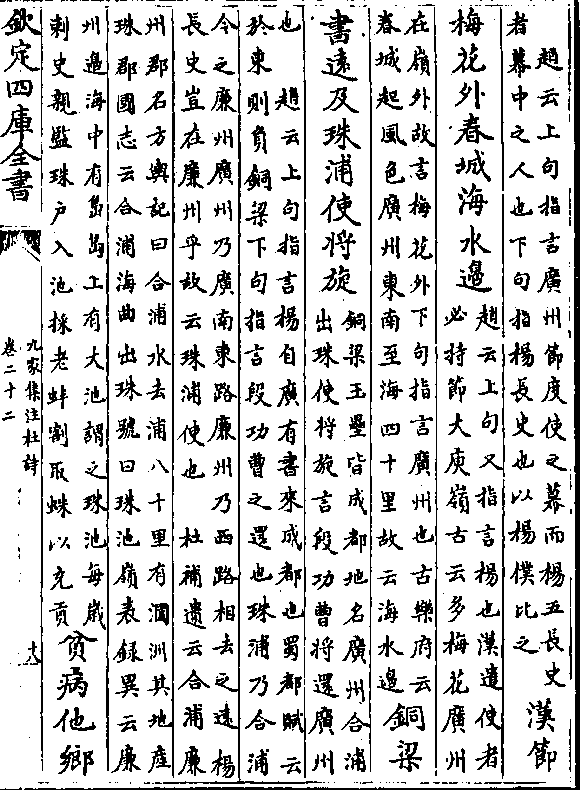 趙云上句指言廣州節度使之幕而楊五長史
者幕中之人也下句指楊長史也以楊僕比之
漢節
梅花外春城海水邊
趙云上句又指言楊也漢遣使者
必持節大庾嶺古云多梅花廣州
在嶺外故言梅花外下句指言廣州也古樂府云
春城起風色廣州東南至海四十里故云海水邊
銅梁
書遠及珠浦使將旋
銅梁玉壘皆成都地名廣州合浦
出珠使將旋言段功曹將還廣州
也　趙云上句指言楊自廣有書來成都也蜀都賦云
於東則負銅梁下句指言段功曹之還也珠浦乃合浦
今之廉州廣州乃廣南東路廉州乃西路相去之遠楊
長史豈在廉州乎故云珠浦使也　杜補遺云合浦廉
州郡名方輿記曰合浦水去浦八十里有涠洲其地產
珠郡國志云合浦海曲出珠號曰珠池嶺表録異云廉
州邊海中有島島上有大池謂之珠池每歲
刺史親監珠户入池採老蚌割取蛛以充貢
貧病他鄉
欽定四庫全書
九家集注杜詩
卷二十二
十八